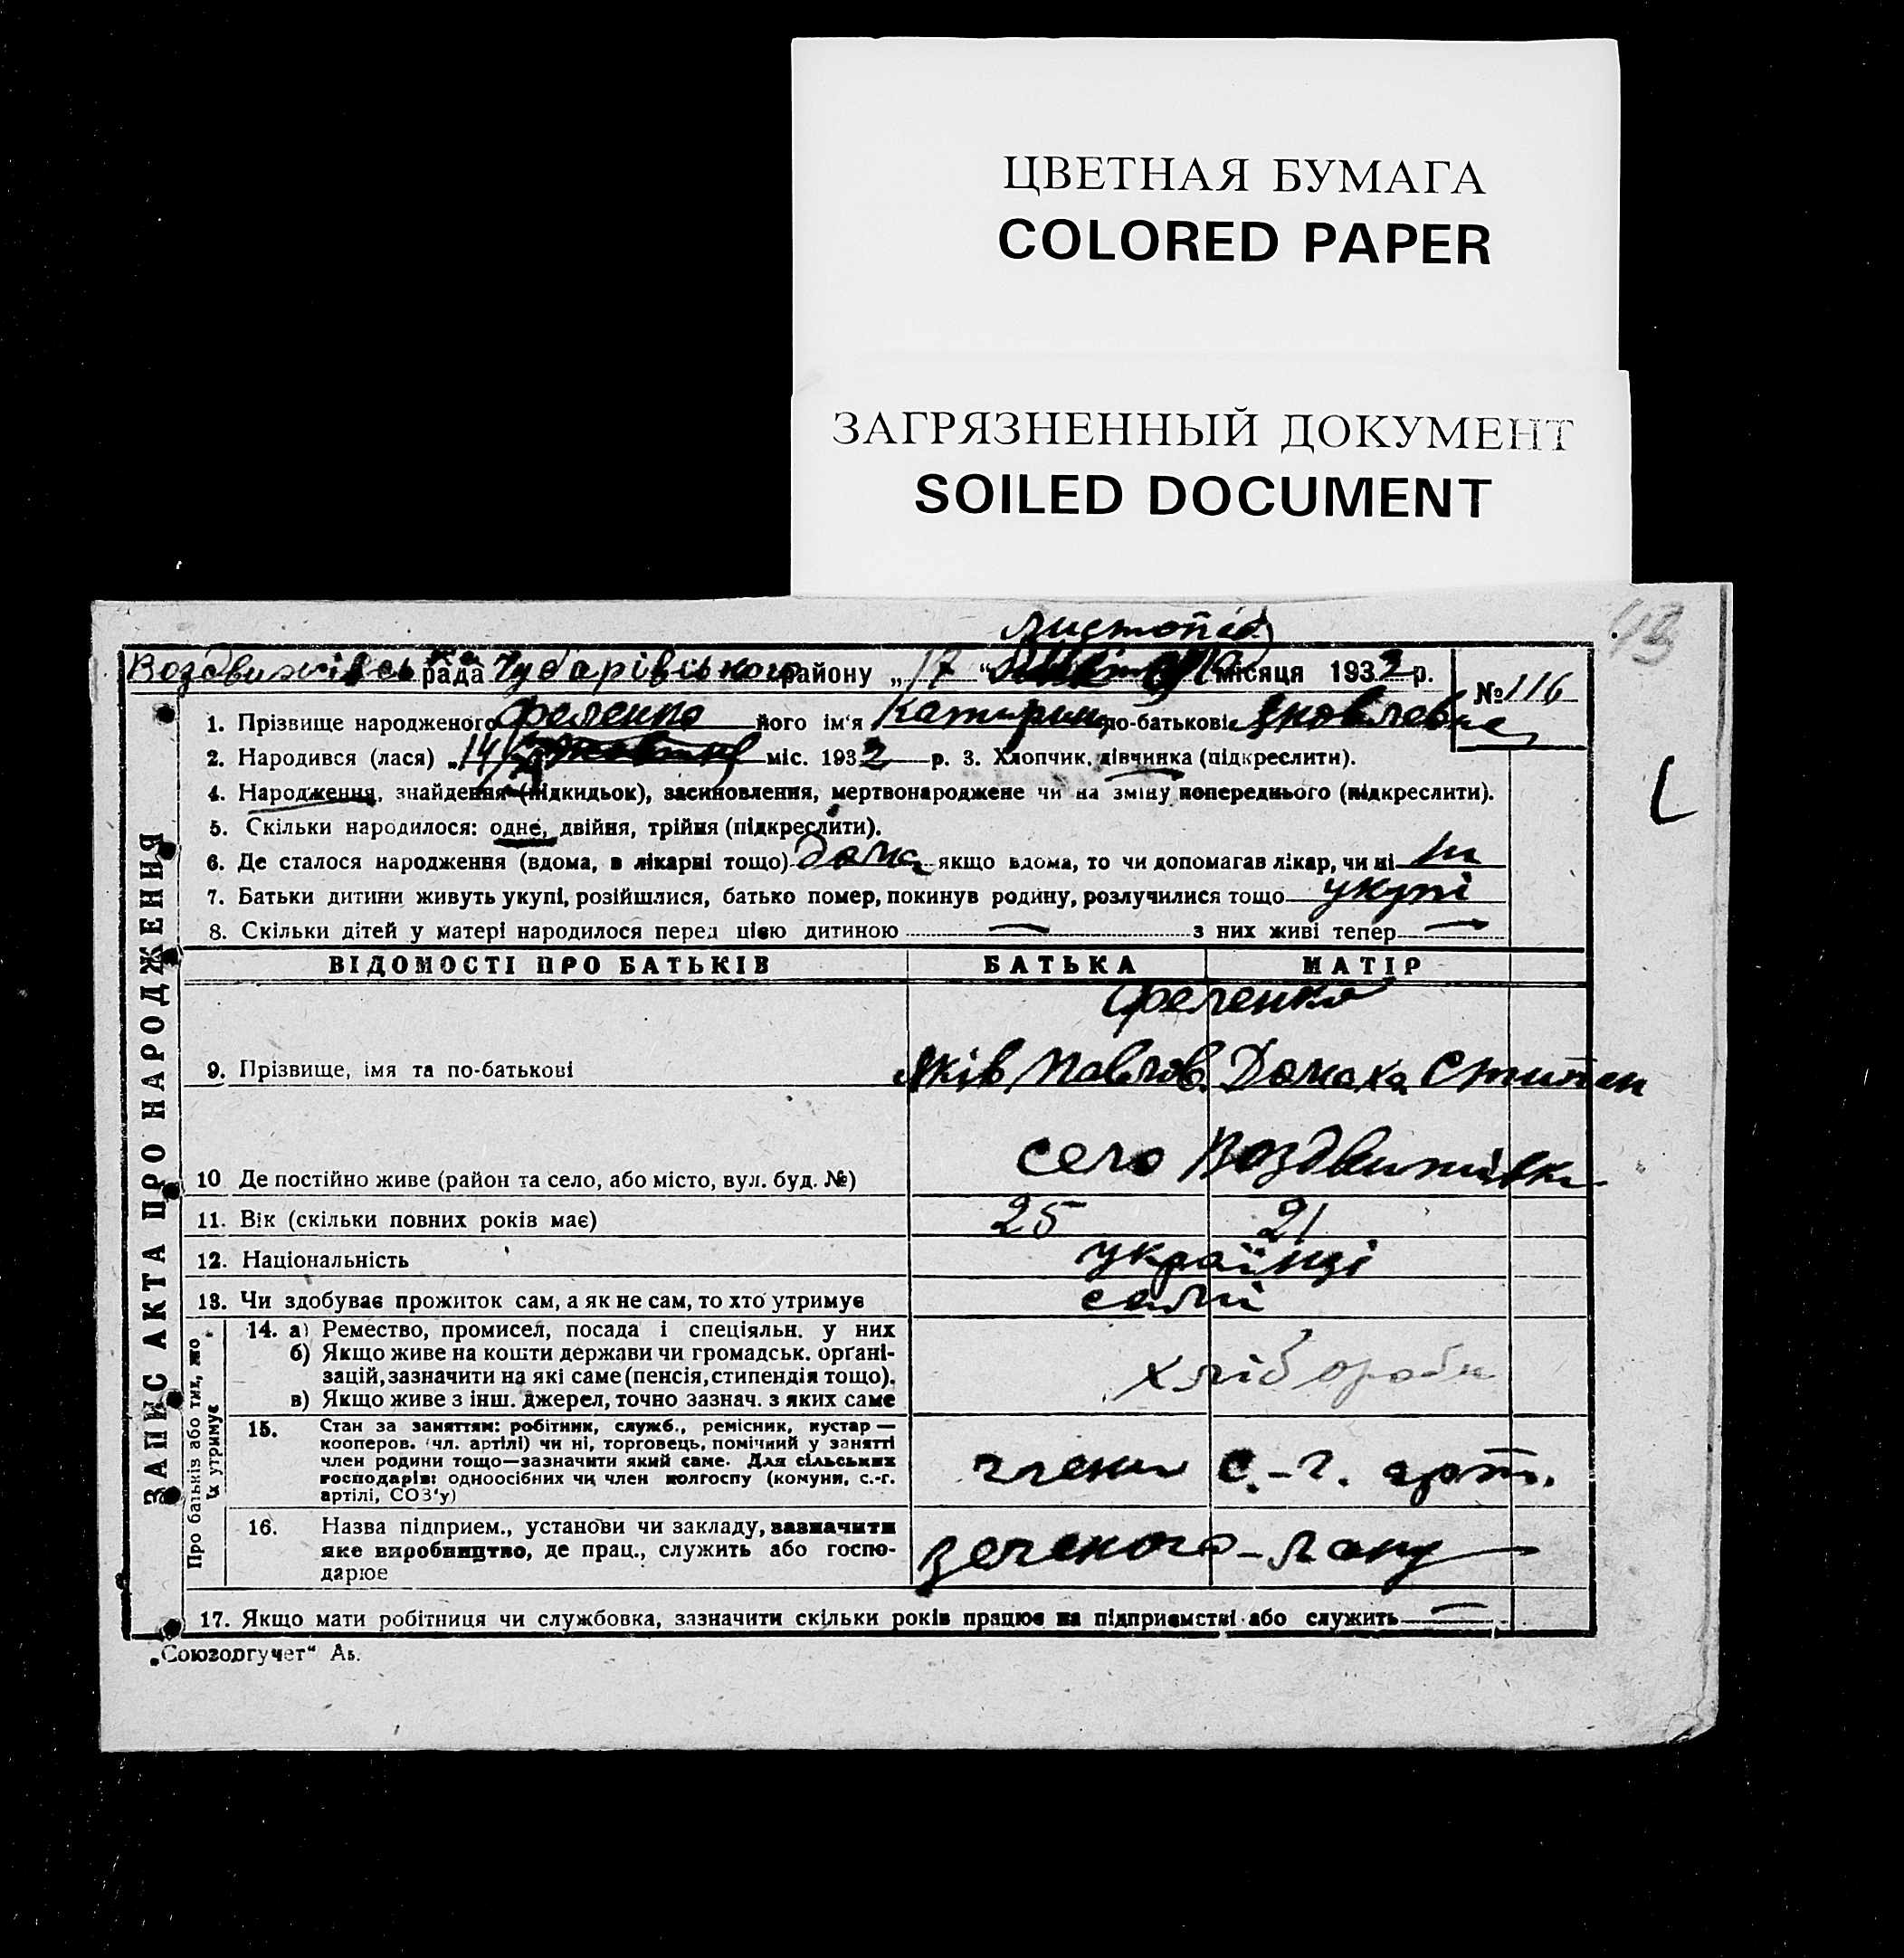 ЦВЕТНАЯ БУМАГА
COLORED PAPER
ЗАГРЯЗНЕННЫЙ ДОКУМЕНТ
SOILED DOCUMENT
43
листопід
Воздвижівська рада Чубарівського району „17“ місяця 1932 р. № 116
1. Прізвище народженого Феленко його ім'я Катерина по-батькові Яковлевна
2. Народився (лася) „14 міс. 1932 р. 3. Хлопчик, дівчинка (підкреслити).
4. Народження, знайдення (підкидьок), засиновлення, мертвонароджене чи на зміну попереднього (підкреслити).
5. Скільки народилося: одне, двійня, трійня (підкреслити).
6. Де сталося народження (вдома, в лікарні тощо) дома якщо вдома, то чи допомагав лікар, чи ні ні
7. Батьки дитини живуть укупі, розійшлися, батько помер, покинув родину, розлучилися тощо укупі
8. Скільки дітей у матері народилося перед цією дитиною — з них живі тепер —
ЗАПИС АКТА ПРО НАРОДЖЕННЯ
ВІДОМОСТІ ПРО БАТЬКІВ БАТЬКА МАТІР
Феленко
9. Прізвище, імя та по-батькові Яків Павлов. Домаха Степан
10 Де постійно живе (район та село, або місто, вул. буд. №) село Воздвижівка
11. Вік (скільки повних років має) 25 21
12. Національність українці
13. Чи здобуває прожиток сам, а як не сам, то хто утримує самі
Про батьків або тих, хто їх утримує
14. а) Ремество, промисел, посада і спеціяльн. у них
б) Якщо живе на кошти держави чи громадськ. орґані-
зацій, зазначити на які саме (пенсія, стипендія тощо).
в) Якщо живе з інш. джерел, точно зазнач. з яких саме
хлібороби
15. Стан за заняттям: робітник, служб., ремісник, кустар —
кооперов. (чл. артілі) чи ні, торговець, помічний у занятті
член родини тощо—зазначити який саме. Для сільських
господарів: одноосібних чи член колгоспу (комуни, с.-г.
артілі, СОЗ'у)
члени с.-г. арт.
16. Назва підприєм., установи чи закладу, зазначити
яке виробництво, де прац., служить або госпо-
дарює
Зеленого-Лану
17. Якщо мати робітниця чи службовка, зазначити скільки років працює на підприємстві або служить —
„Союзоргучет“